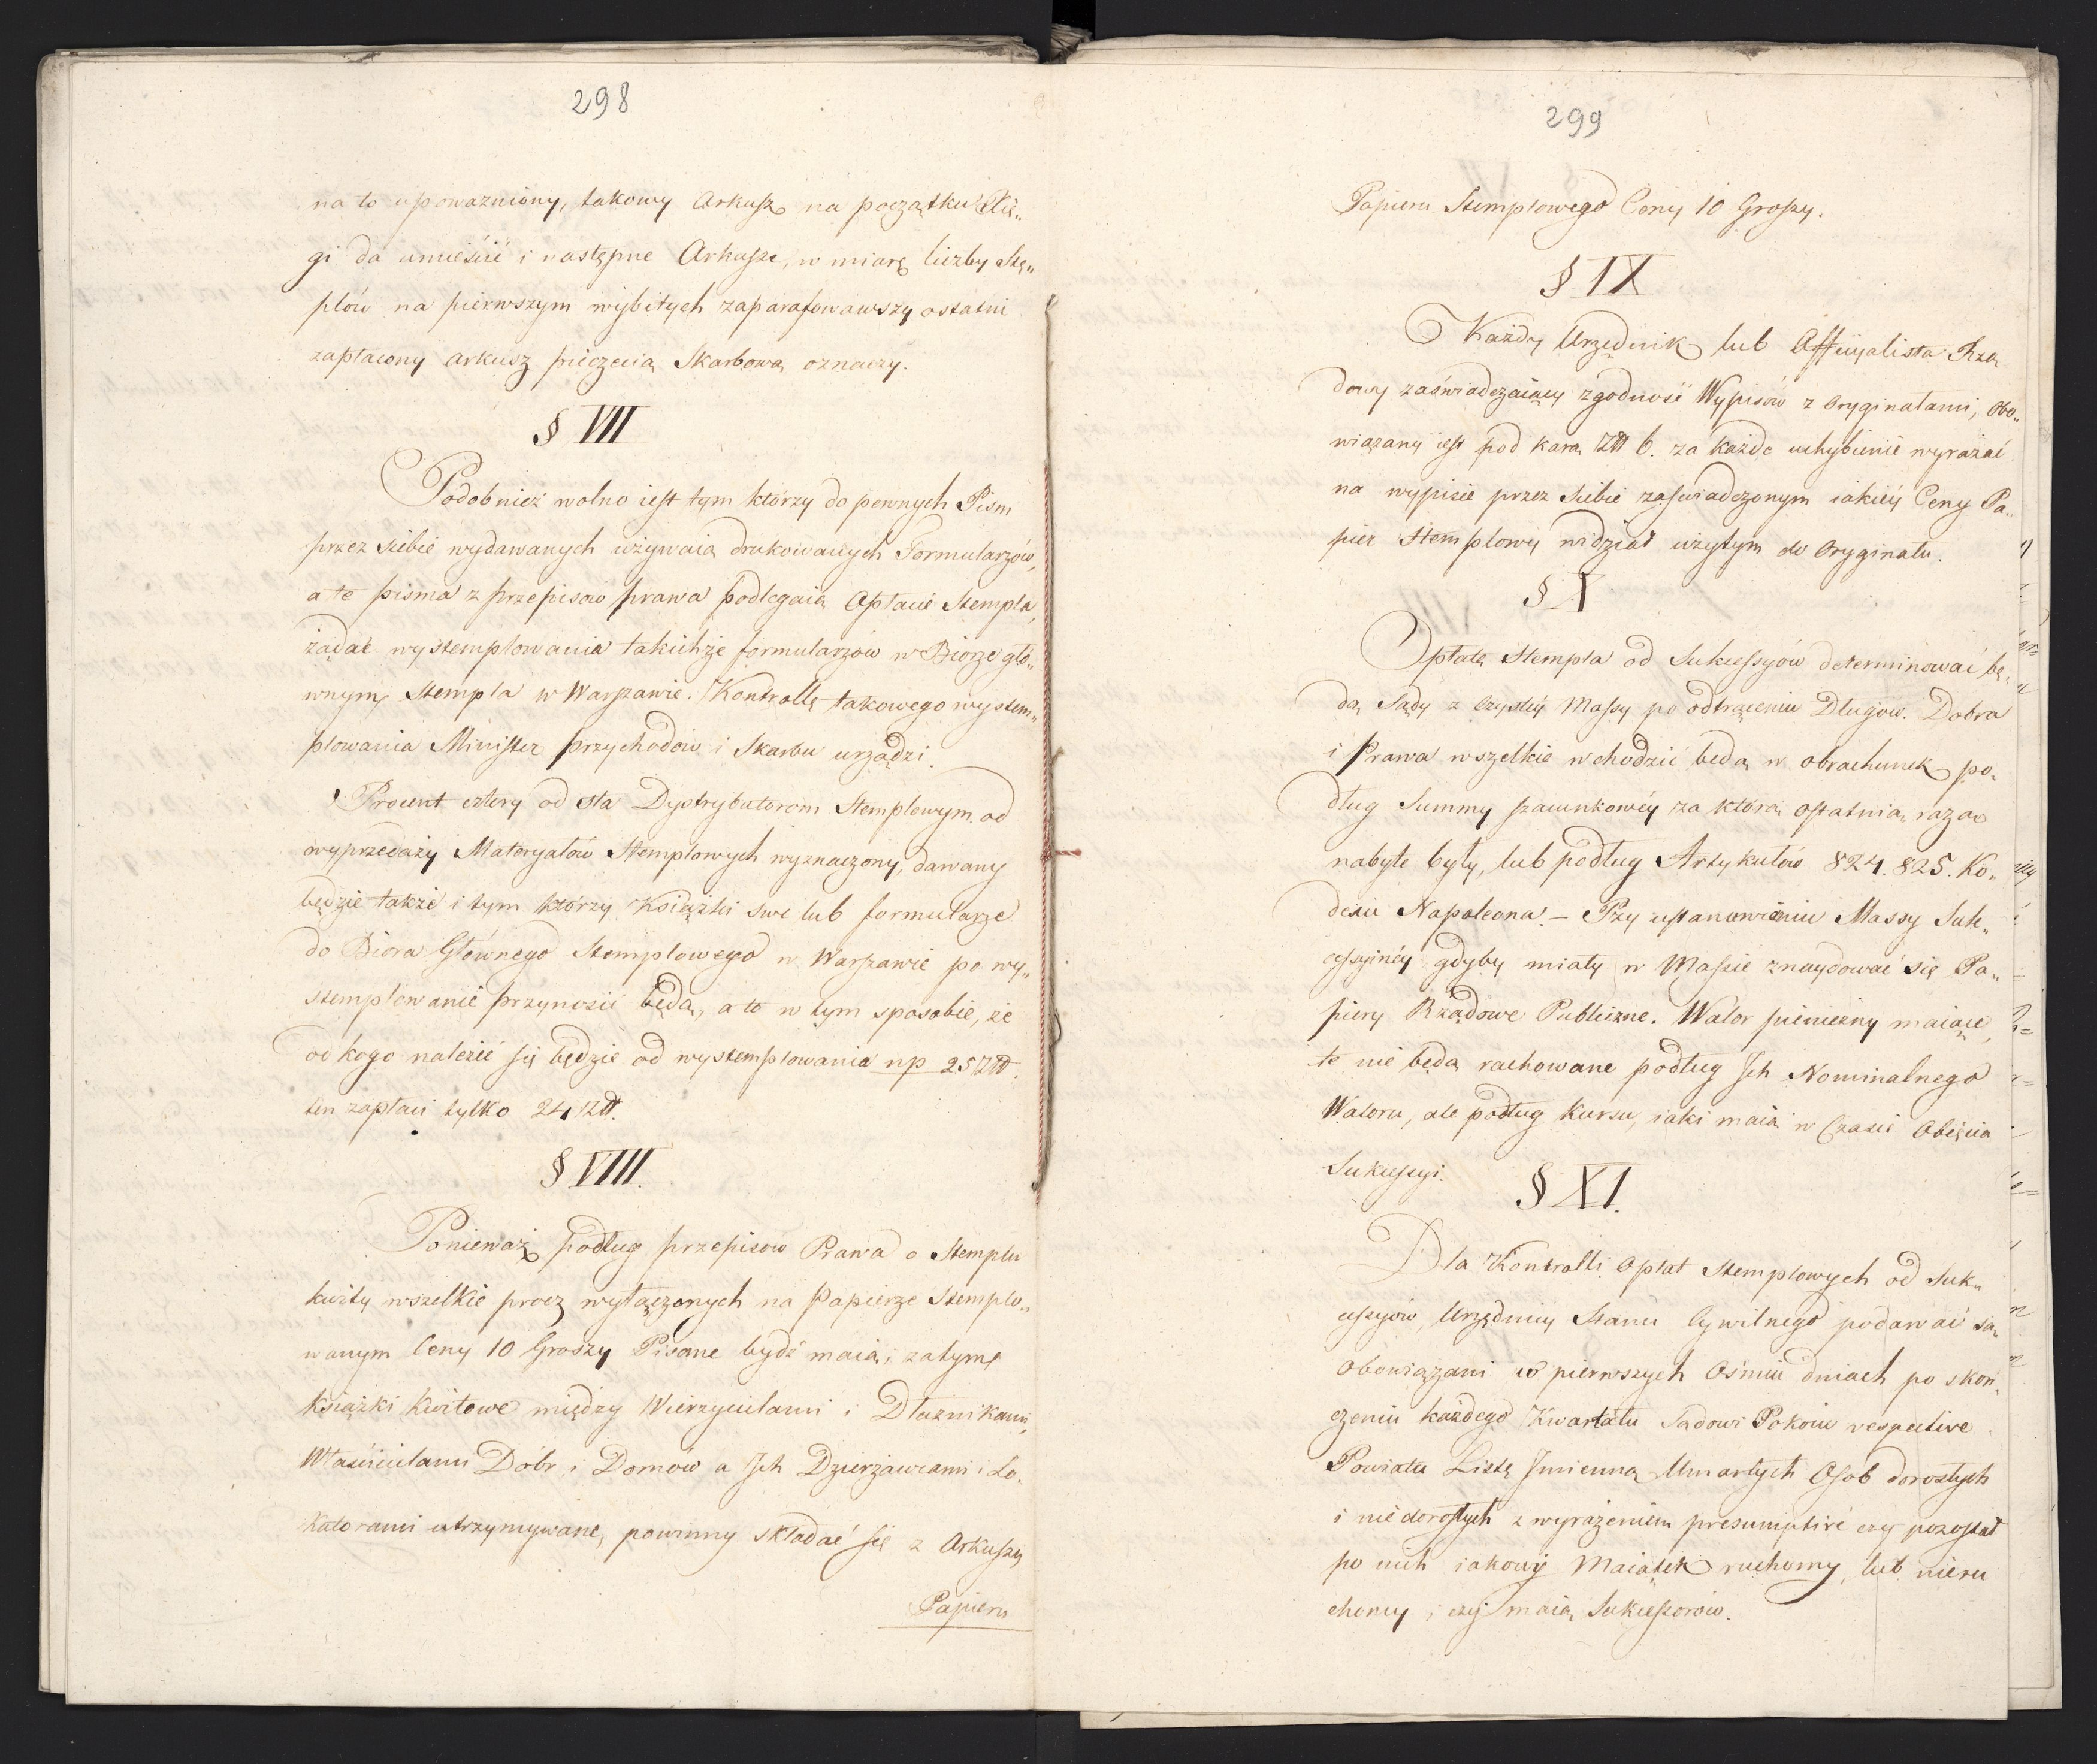 298
na to upoważniony, takowy Arkusz na początku Xię„
gi da umieścić i następne Arkusze, w miarę liczby Stę„
plów na pierwszym wybitych zaparafowawszy ostatni
zapłacony arkusz pieczęcią Skarbową oznaczy.
§ VII
Podobnież wolno iest tym którzy do pewnych Pism
przez siebie wydawanych używaią drukowanych Formularzów,
a te pisma z przepisów prawa podlegaią Opłacie Stempla,
żądać wystemplowania takichże formularzów w Biorze głó„
wnym Stempla w Warszawie. Kontrollę takowego wystem„
plowania Minister przychodów i Skarbu urządzi.
Procent cztery od sta Dystrybutorom Stemplowym od
wyprzedaży Materyałów Stemplowych wyznaczony, dawany
będzie także i tym którzy Książki swe lub formularze
do Biora Głównego Stemplowego w Warszawie po wy„
stemplowanie przynosić będą, a to w tym sposobie, że
od kogo należeć się będzie od wystemplowania np 25 Złł.
ten zapłaci tylko 24 Złł.
§ VIII.
Ponieważ podług przepisów Prawa o Stemplu
kwity wszelkie procz wyłączonych na Papierze Stemplo„
wanym Ceny 10 Groszy Pisane bydź maią; zatym
książki kwitowe między Wierzycielami i Dłużnikami,
Właścicielami Dóbr i Domów a Ich Dzierżawcami i Lo„
katorami utrzymywane, powinny składać się z Arkuszy
Papieru
299
Papieru Stemplowego Ceny 10 Groszy.
§ IX
Każdy Urzędnik lub Officyalista Rzą
dowy zaświadczaiący zgodność Wypisów z Oryginałami, obo„
wiązany iest pod karą Złł 6. za każde uchybienie wyrażać
na wypisie przez siebie zaświadczonym iakiéy Ceny Pa„
pier Stemplowy widział użytym do Oryginału.
§ X
Opłatę Stempla od Sukcessyów determinować bę„
dą Sądy z Czystéy Massy po odtrąceniu Długów. Dobra
i Prawa wszelkie wchodzić będą w obrachunek po„
dług Summy szacunkowéy za którą ostatnią razą
nabyte były, lub podług Artykułów 824. 825. Ko„
dexu Napoleona. — Przy ustanowieniu Massy Suk„
cessyinéy gdyby miały w Massie znaydować się Pa„
piery Rządowe Publiczne. Walor pieniężny maiące,
te nie będą rachowane podług Ich Nominalnego
Waloru, ale podług kursu, iaki maią w Czasie Obięcia
Sukcessyi.
§ XI.
Dla Kontrolli Opłat Stemplowych od Suk„
cessyów, Urzędnicy Stanu Cywilnego podawać są
obowiązani w pierwszych Ośmiu dniach po skoń„
czeniu każdego Kwartału Sądowi Pokoiu respective
Powiatu Listę Imienną Umarłych Osob dorosłych
i niedorosłych z wyrażeniem presumptivé czy pozostał
po nich iakowy Maiątek ruchomy, lub nieru
chomy i czy maią Sukcessorów.